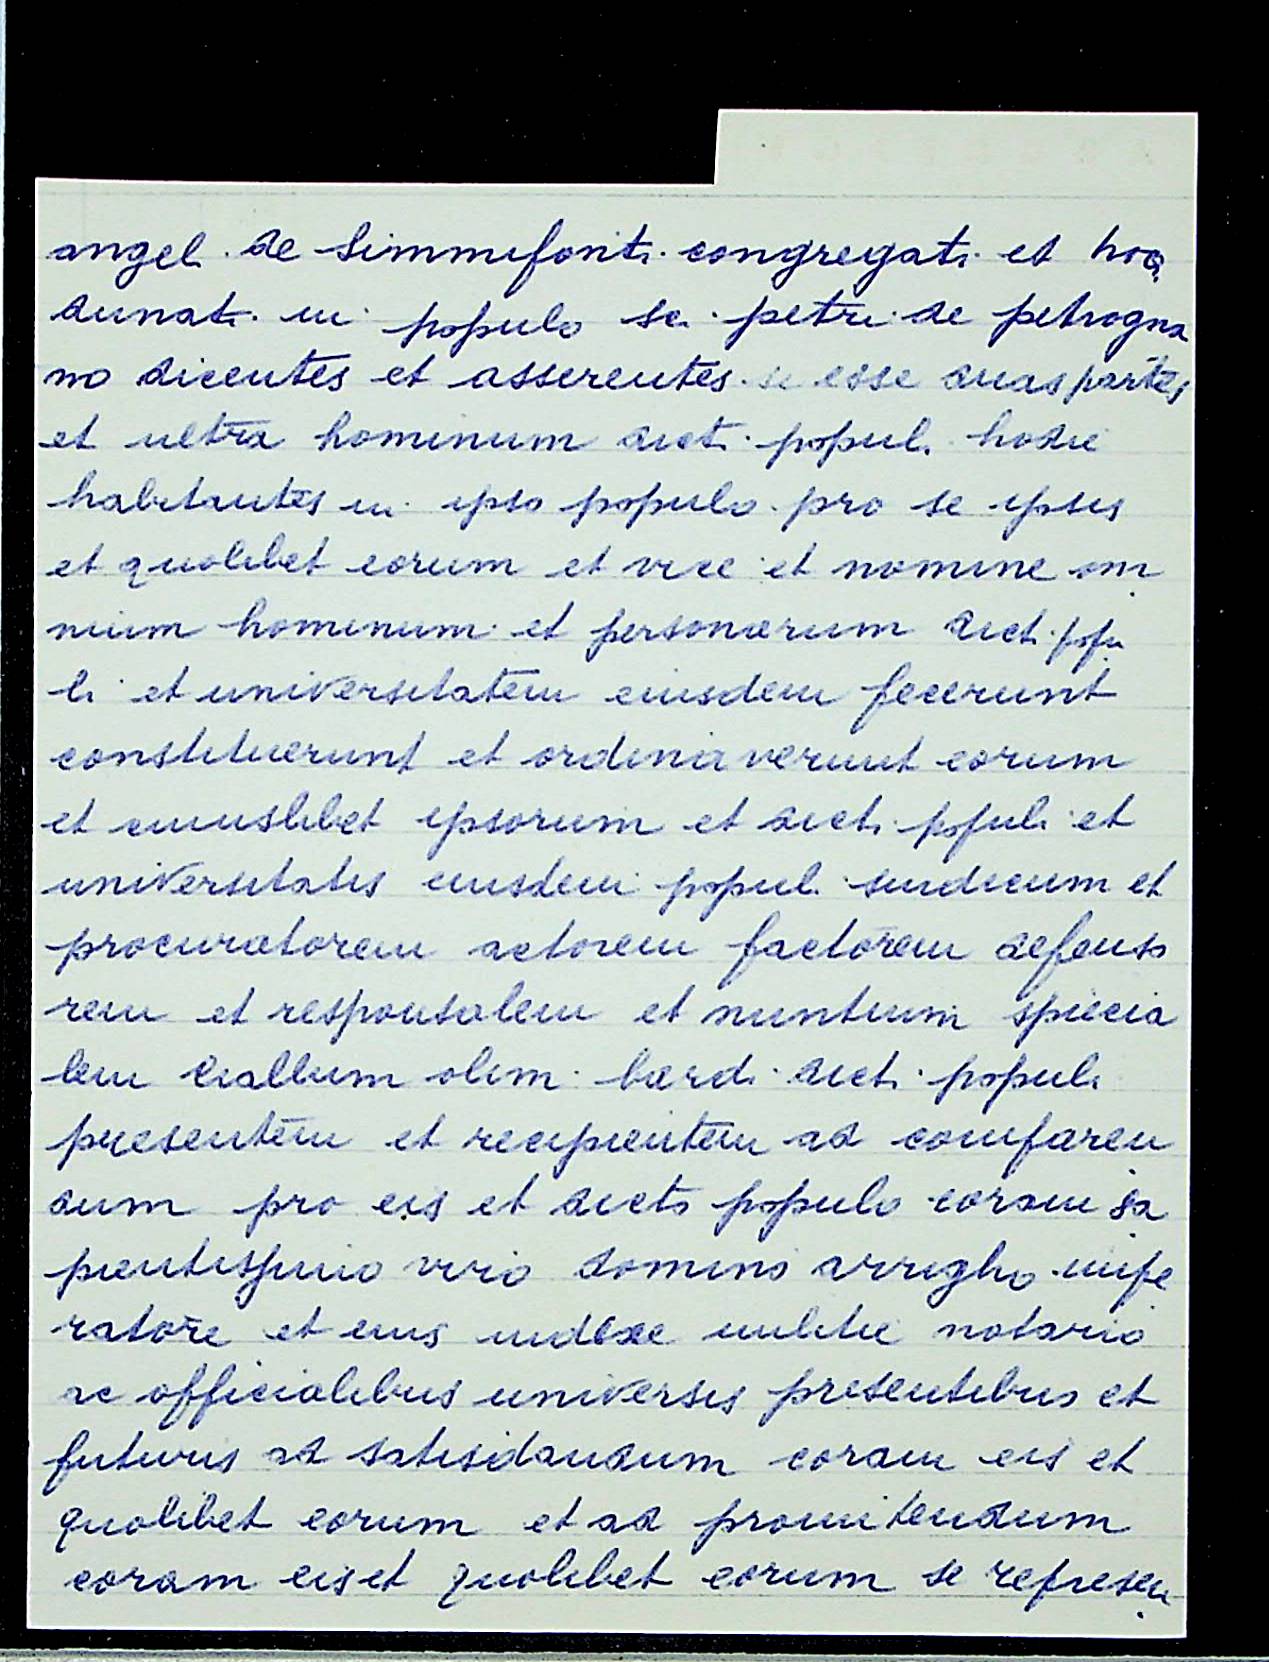 angel. de Simmifonti. congregati. et hoa
dunati. in. populo sci. petri. de petrogna
no dicentes et asserentes. se esse duas partes
et ultra hominum dicti. populi. hodie
habitantes in. ipso populo. pro se ipsis
et quolibet eorum et vice et nomine om
nium hominum. et personarum dicti. popu
li. et universitatem eiusdem fecerunt
constituerunt et ordinaverunt eorum
et cuiuslibet ipsorum et dicti. populi et
universitatis eiusdem populi. sindicum et
procuratorem actorem factorem defenso
rem et responsalem et nuntium specia
lem olim. bardi. dicti. populi
presentem et recipientem ad comparen
dum pro eis et dicto populo coram sa
pientissimo viro domino arrigho impe
ratore et eius iudice milite notario
ac officialibus universis presentibus et
futuris ad satisdandum coram eis et
quolibet eorum et ad promittendum
coram eis et quolibet eorum se represen